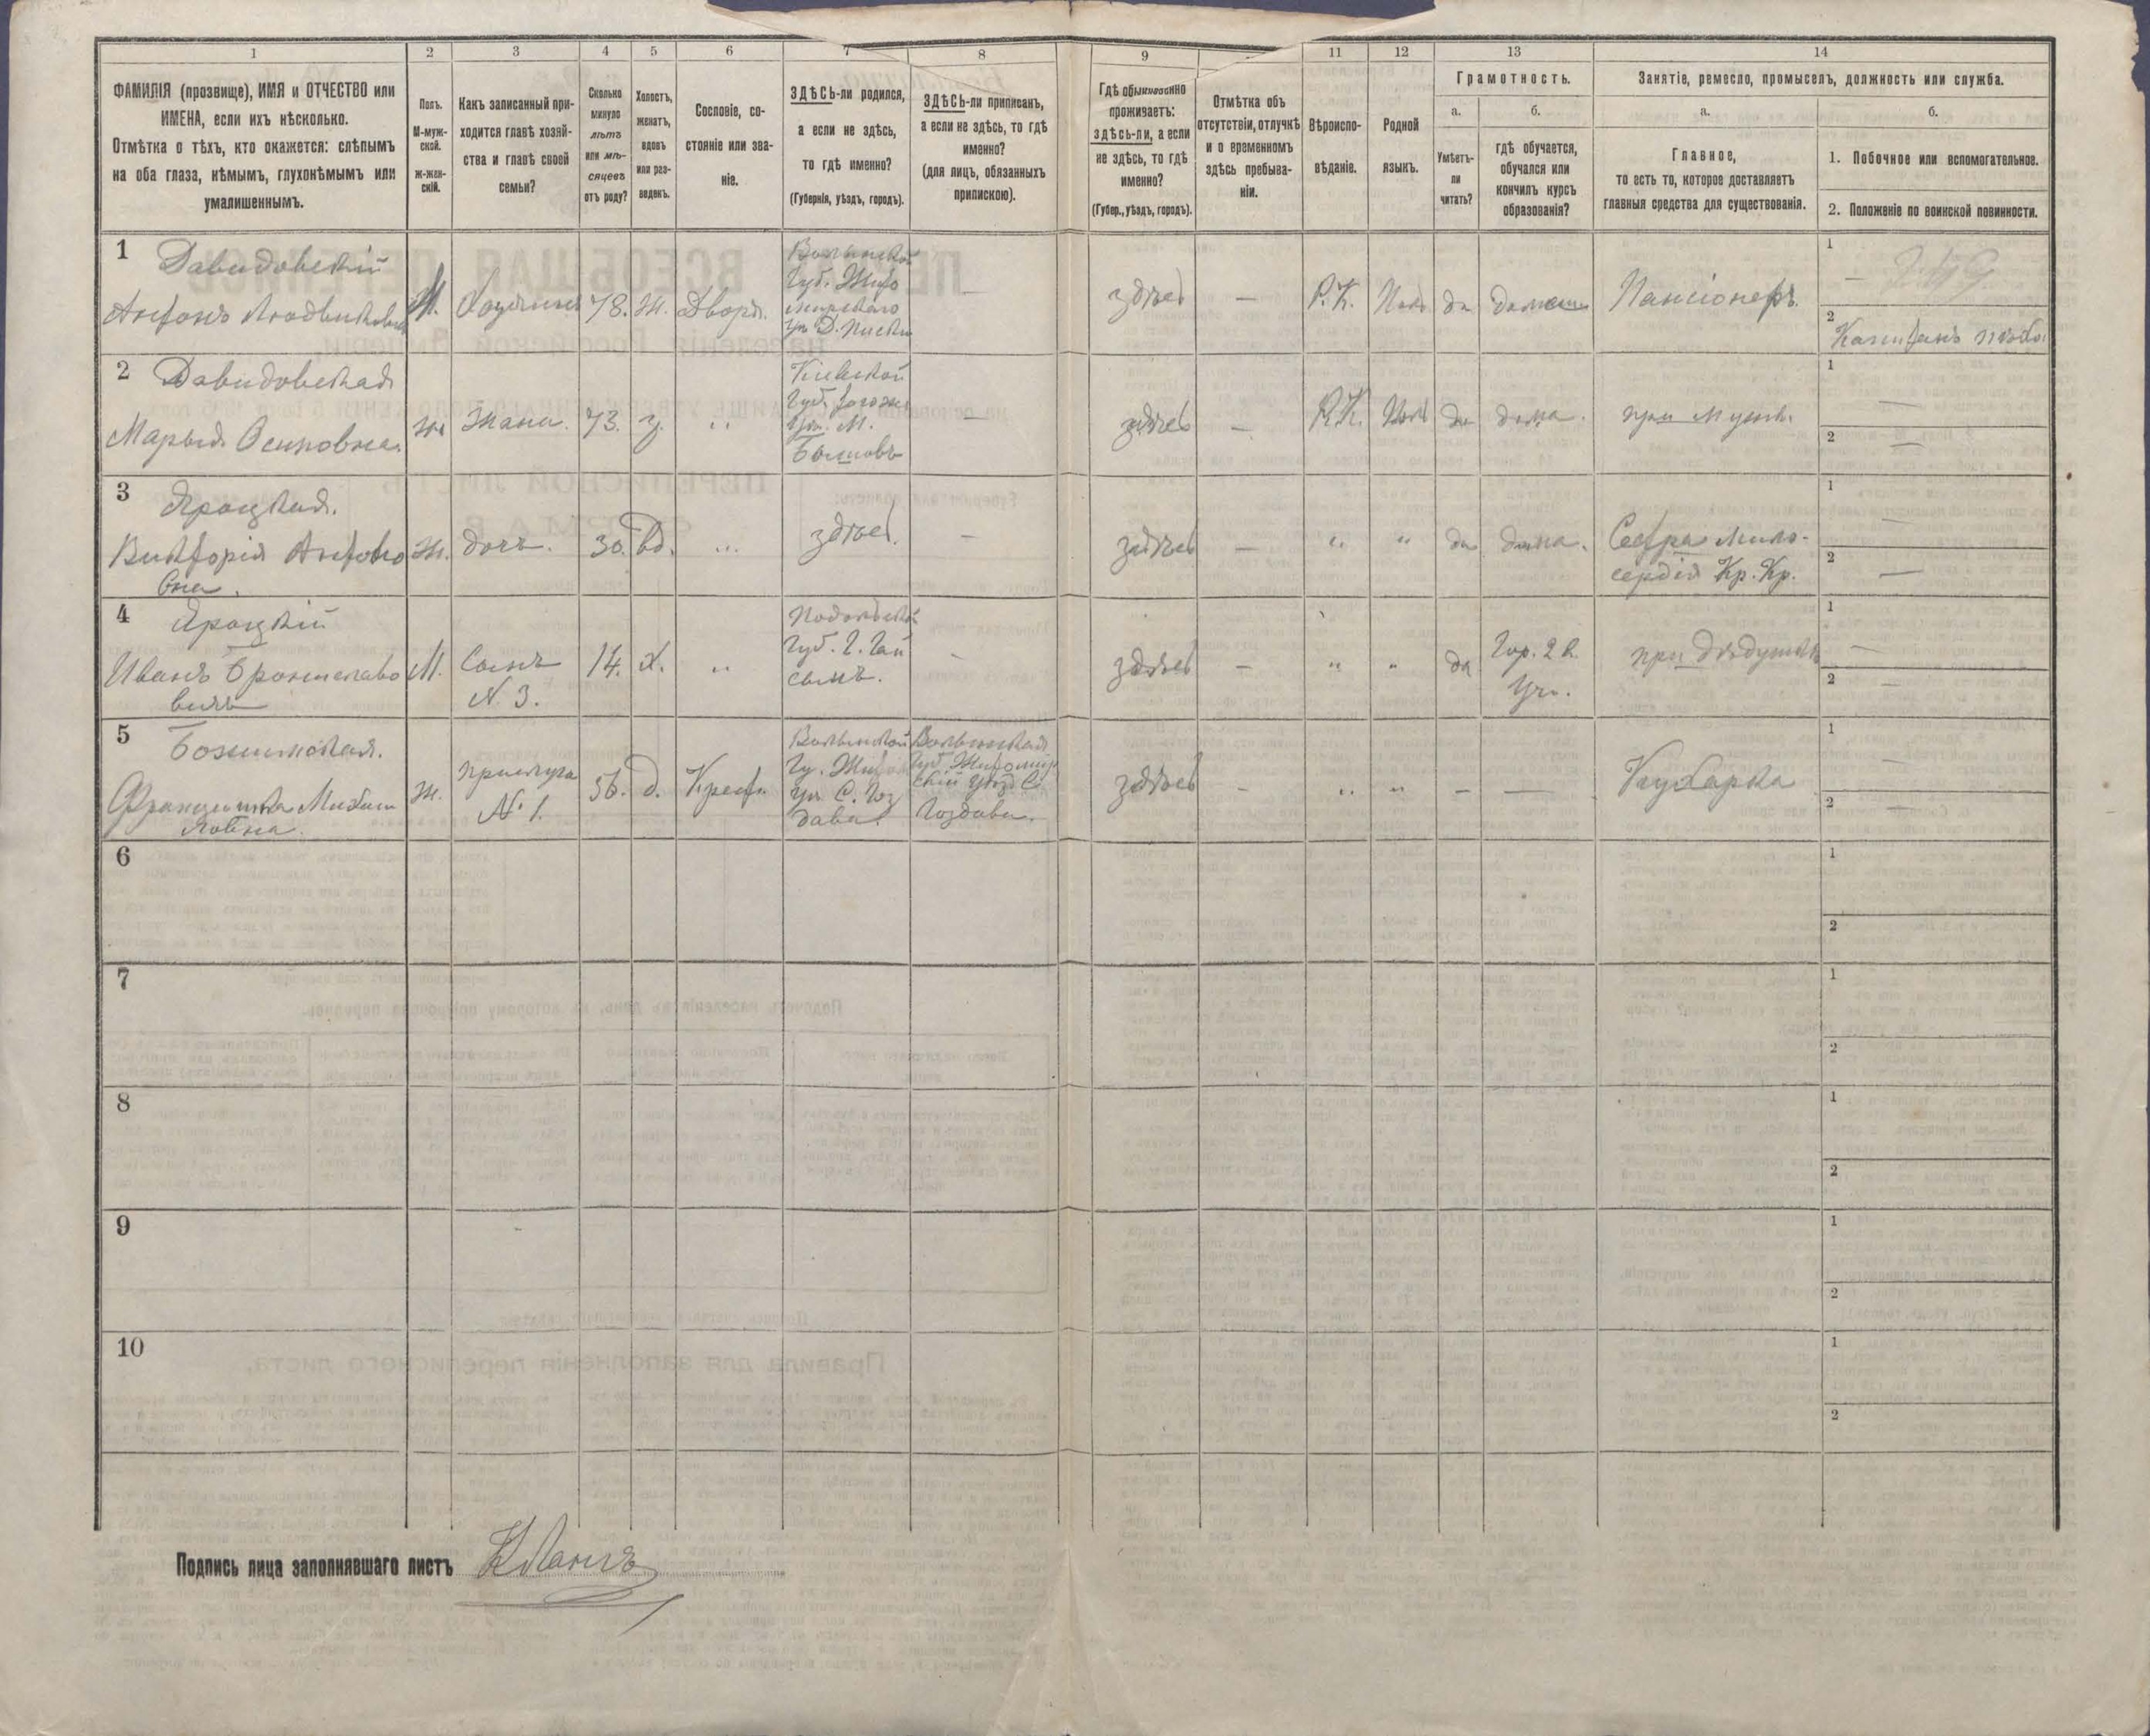 1
2
3
4
5
6
7
8
9
11
12
13
14
ФАМИЛІЯ (прозвище), ИМЯ и ОТЧЕСТВО или
ИМЕНА, если ихъ нѣсколько.
Отмѣтка о тѣхъ, кто окажется: слѣпымъ
на оба глаза, нѣмымъ, глухонѣмымъ или
умалишеннымъ.
Полъ.
М-муж-
ской.
Ж-жен-
скій.
Какъ записанный при-
ходится главѣ хозяй-
ства и главѣ своей
семьи?
Сколько
минуло
лѣтъ
или мѣ-
сяцевъ
отъ роду?
Холостъ,
женатъ,
вдовъ
или раз-
веденъ.
Сословіе, со-
стояніе или зва-
ніе.
ЗДѢСЬ-ли родился,
а если не здѣсь,
то гдѣ именно?
(Губернія, уѣздъ, городъ).
ЗДѢСЬ-ли приписанъ,
а если не здѣсь, то гдѣ
именно?
(для лицъ, обязанныхъ
припискою).
Гдѣ обыкновенно
проживаетъ:
здѣсь-ли, а если
не здѣсь, то гдѣ
именно?
(Губер., уѣздъ, городъ).
Отмѣтка объ
отсутствіи, отлучкѣ
и о временномъ
здѣсь пребыва-
ніи.
Вѣроиспо-
вѣданіе.
Родной
языкъ.
Грамотность.
а.
Умѣетъ-
ли
читать?
б.
гдѣ обучается,
обучался или
кончилъ курсъ
образованія?
Занятіе, ремесло, промыселъ, должность или служба.
а.
Главное,
то есть то, которое доставляетъ
главныя средства для существованія.
б.
1. Побочное или вспомогательное.
2. Положеніе по воинской повинности.
1
Давидовскій
Антонъ Людвиковичъ
М.
Хозяинъ
78.
Ж.
Дворя.
Волынской
Губ. Жито
мирскаго
у. Д.
—
здѣсь
—
Р.К.
да
Пансіонеръ
1
—
2
Капитанъ
2
Давидовская
Марья Осиповна.
Ж.
Жена.
73.
з.
„
Кіевской
Губ.
М.
—
здѣсь
—
Р.К.
да
дома.
при мужѣ.
1
—
2
—
3
Яроцкая.
Викторія Антоно
вна.
Ж.
дочь.
30.
вд.
„
здѣсь.
—
здѣсь
—
„
„
да
дома.
Сестра мило-
сердія Кр. Кр.
1
—
2
—
4
Яроцкій
Иванъ Брониславо
вичъ
М.
Сынъ
N 3.
14.
Х.
„
Подольской
Губ. Г. Гай
сынъ.
—
здѣсь
—
„
„
да
Гор. 2 к.
Уч.
при дѣдушкѣ
1
—
2
—
5
Франциска Михаи
ловна.
Ж.
прислуга
N 1.
56.
д.
Крест.
Волынской
Гу. Жит
у. С. Гоз
дава.
Волынская
Губ. Житомир
скій уѣздъ С.
Гоздава.
здѣсь
—
„
„
—
—
Кухарка
1
—
2
—
6
1
2
7
1
2
8
1
2
9
1
2
10
1
2
Подпись лица заполнявшаго листъ